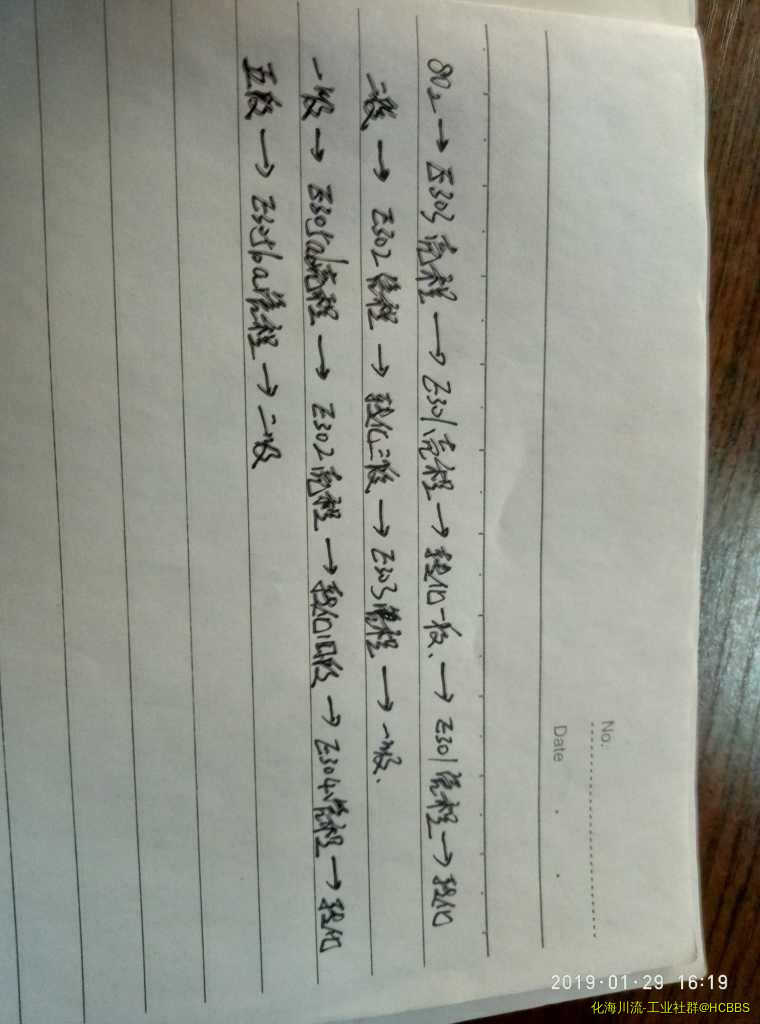 No:
Date
SO2 → E303壳程 → E301壳程 → 转化一段. → E301管程 → 转化
二段 → E302管程 → 转化三段 → E303管程 → 一吸.
一吸 → E305ab壳程 → E302壳程 → 转化四段 → E304管程 → 转化
五段 → E305ba管程 → 二吸
2019·01·29 16:19
化海川流-工业社群@HCBBS